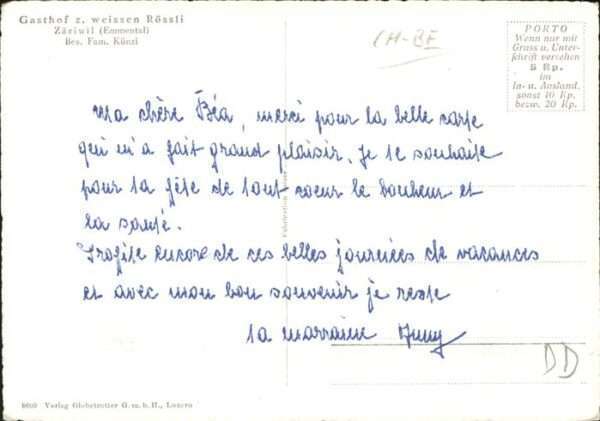 Gasthof z. weissen Rössli
Zäziwil (Emmental)
Bes. Fam. Künzi
CH-BE
PORTO
Wenn nur mit
Gruss u. Unter-
schrift versehen
5 Rp.
im
In- u. Ausland.
sonst 10 Rp.
bezw. 20 Rp.
Ma chère Béa, merci pour la belle carte
qui m'a fait grand plaisir. Je te souhaite
pour ta fête de tout coeur le bonheur et
la santé.
Profite encore de ces belles journées de vacances
et avec mon bon souvenir je reste
ta marraine
DD
Verlag Globetrotter G.m.b.H., Luzern